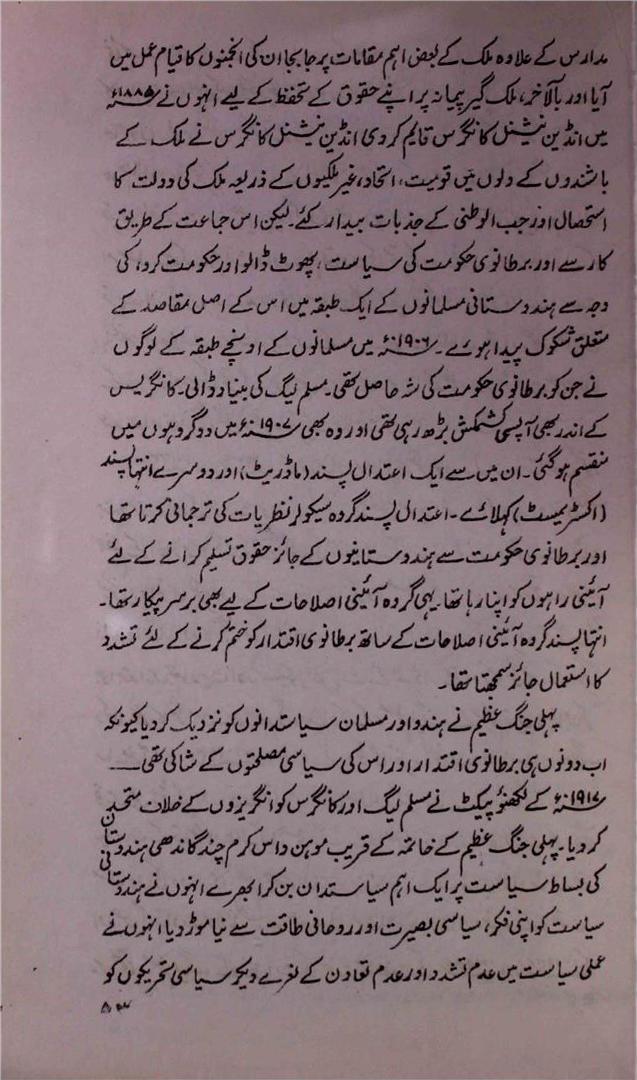 مدارس کے علاوہ ملک کے بعض اہم مقامات پر جا بجا ان کی انجمنوں کا قیام عمل میں
آیا اور بالآخر، ملک گیر پیمانہ پر اپنے حقوق کے تحفظ کے لیے انہوں نے ۱۸۸۵ء
میں انڈین نیشنل کانگرس قائم کردی انڈین نیشنل کانگرس نے ملک کے
باشندوں کے دلوں میں قومیت، اتحاد، غیر ملکیوں کے ذریعہ ملک کی دولت کا
استحصال اور حب الوطنی کے جذبات بیدار کئے۔ لیکن اس جماعت کے طریق
کار سے اور برطانوی حکومت کی سیاست، پھوٹ ڈالو اور حکومت کرو، کی
وجہ سے ہندوستانی مسلمانوں کے ایک طبقہ میں اس کے اصل مقاصد کے
متعلق شکوک پیدا ہوے۔ ۱۹۰۶ء میں مسلمانوں کے اونچے طبقہ کے لوگوں
نے جن کو برطانوی حکومت کی شہ حاصل تھی۔ مسلم لیگ کی بنیاد ڈالی۔ کانگریس
کے اندر بھی آپسی کشمکش بڑھ رہی تھی اور وہ بھی ۱۹۰۷ء میں دو گروہوں میں
منقسم ہو گئی۔ ان میں سے ایک اعتدال پسند (ماڈریٹ) اور دوسرے انتہا پسند
(اکسٹریمسٹ) کہلائے۔ اعتدال پسند گروہ سیکولر نظریات کی ترجمانی کرتا تھا
اور برطانوی حکومت سے ہندوستانیوں کے جائز حقوق تسلیم کرانے کے لئے
آئینی راہوں کو اپنا رہا تھا۔ یہی گروہ آئینی اصلاحات کے لیے بھی برسرپیکار تھا۔
انتہا پسند گروہ آئینی اصلاحات کے ساتھ برطانوی اقتدار کو ختم کرنے کے لئے تشدد
کا استعمال جائز سمجھتا تھا۔
پہلی جنگ عظیم نے ہندو اور مسلمان سیاستدانوں کو نزدیک کر دیا کیونکہ
اب دونوں ہی برطانوی اقتدار اور اس کی سیاسی مصلحتوں کے شاکی تھی ـــ
۱۹۱۷ء کے لکھنؤ پیکٹ نے مسلم لیگ اور کانگرس کو انگریزوں کے خلاف متحد
کر دیا۔ پہلی جنگ عظیم کے خاتمہ کے قریب موہن داس کرم چند گاندھی ہندوستانی
کی بساط سیاست پر ایک اہم سیاستدان بن کر ابھرے انہوں نے ہندوستانی
سیاست کو اپنی فکر، سیاسی بصیرت اور روحانی طاقت سے نیا موڑ دیا انہوں نے
عملی سیاست میں عدم تشدد اور عدم تعاون کے نعرے دیکر سیاسی تحریکوں کو